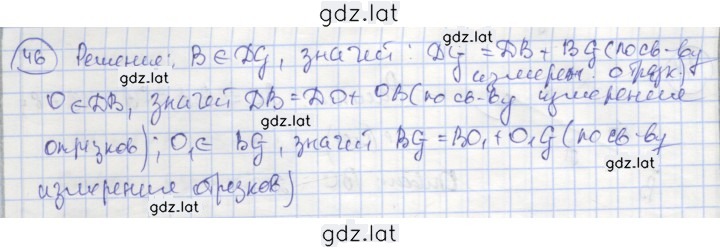 gdz.lat
46 Решение: B ∈ DG, значит: DG = DB + BG (по св-ву
gdz.lat
измерен. отрезк.)
O ∈ DB, значит DB = DO + OB (по св-ву измерения
gdz.lat
отрезков); O₁ ∈ BG, значит BG = BO₁ + O₁G (по св-ву
gdz.lat
измерения отрезков)
gdz.lat
gdz.lat